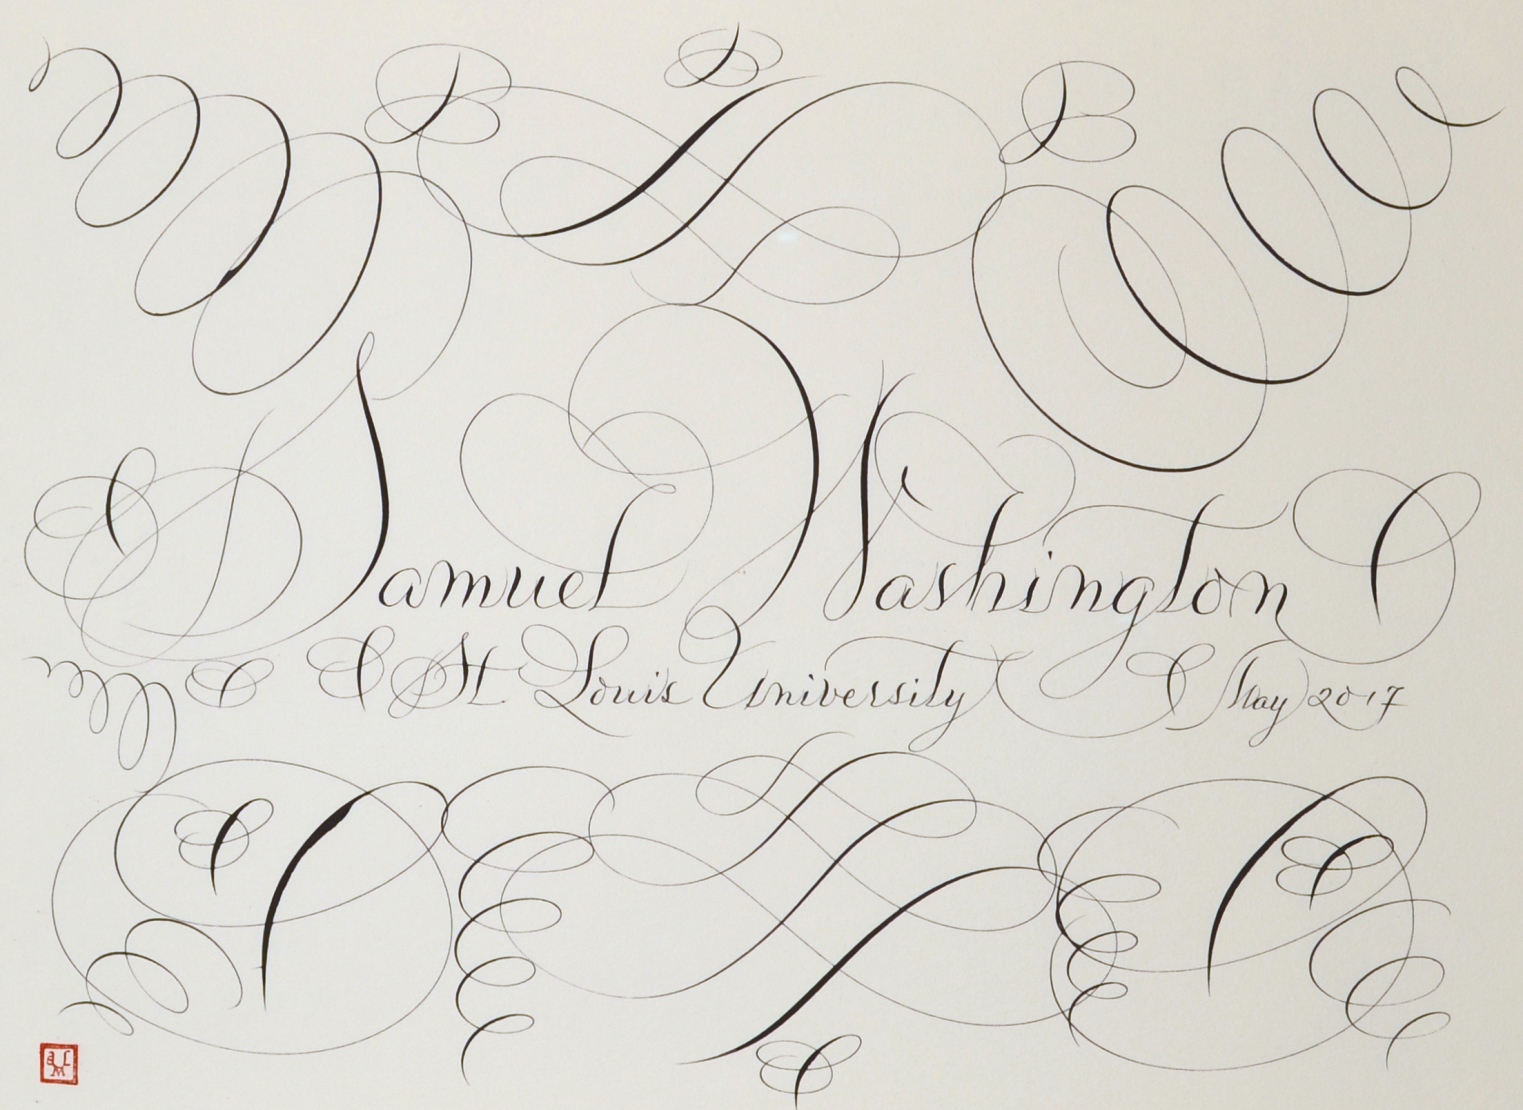 Samuel Washington
St. Louis University May 2017